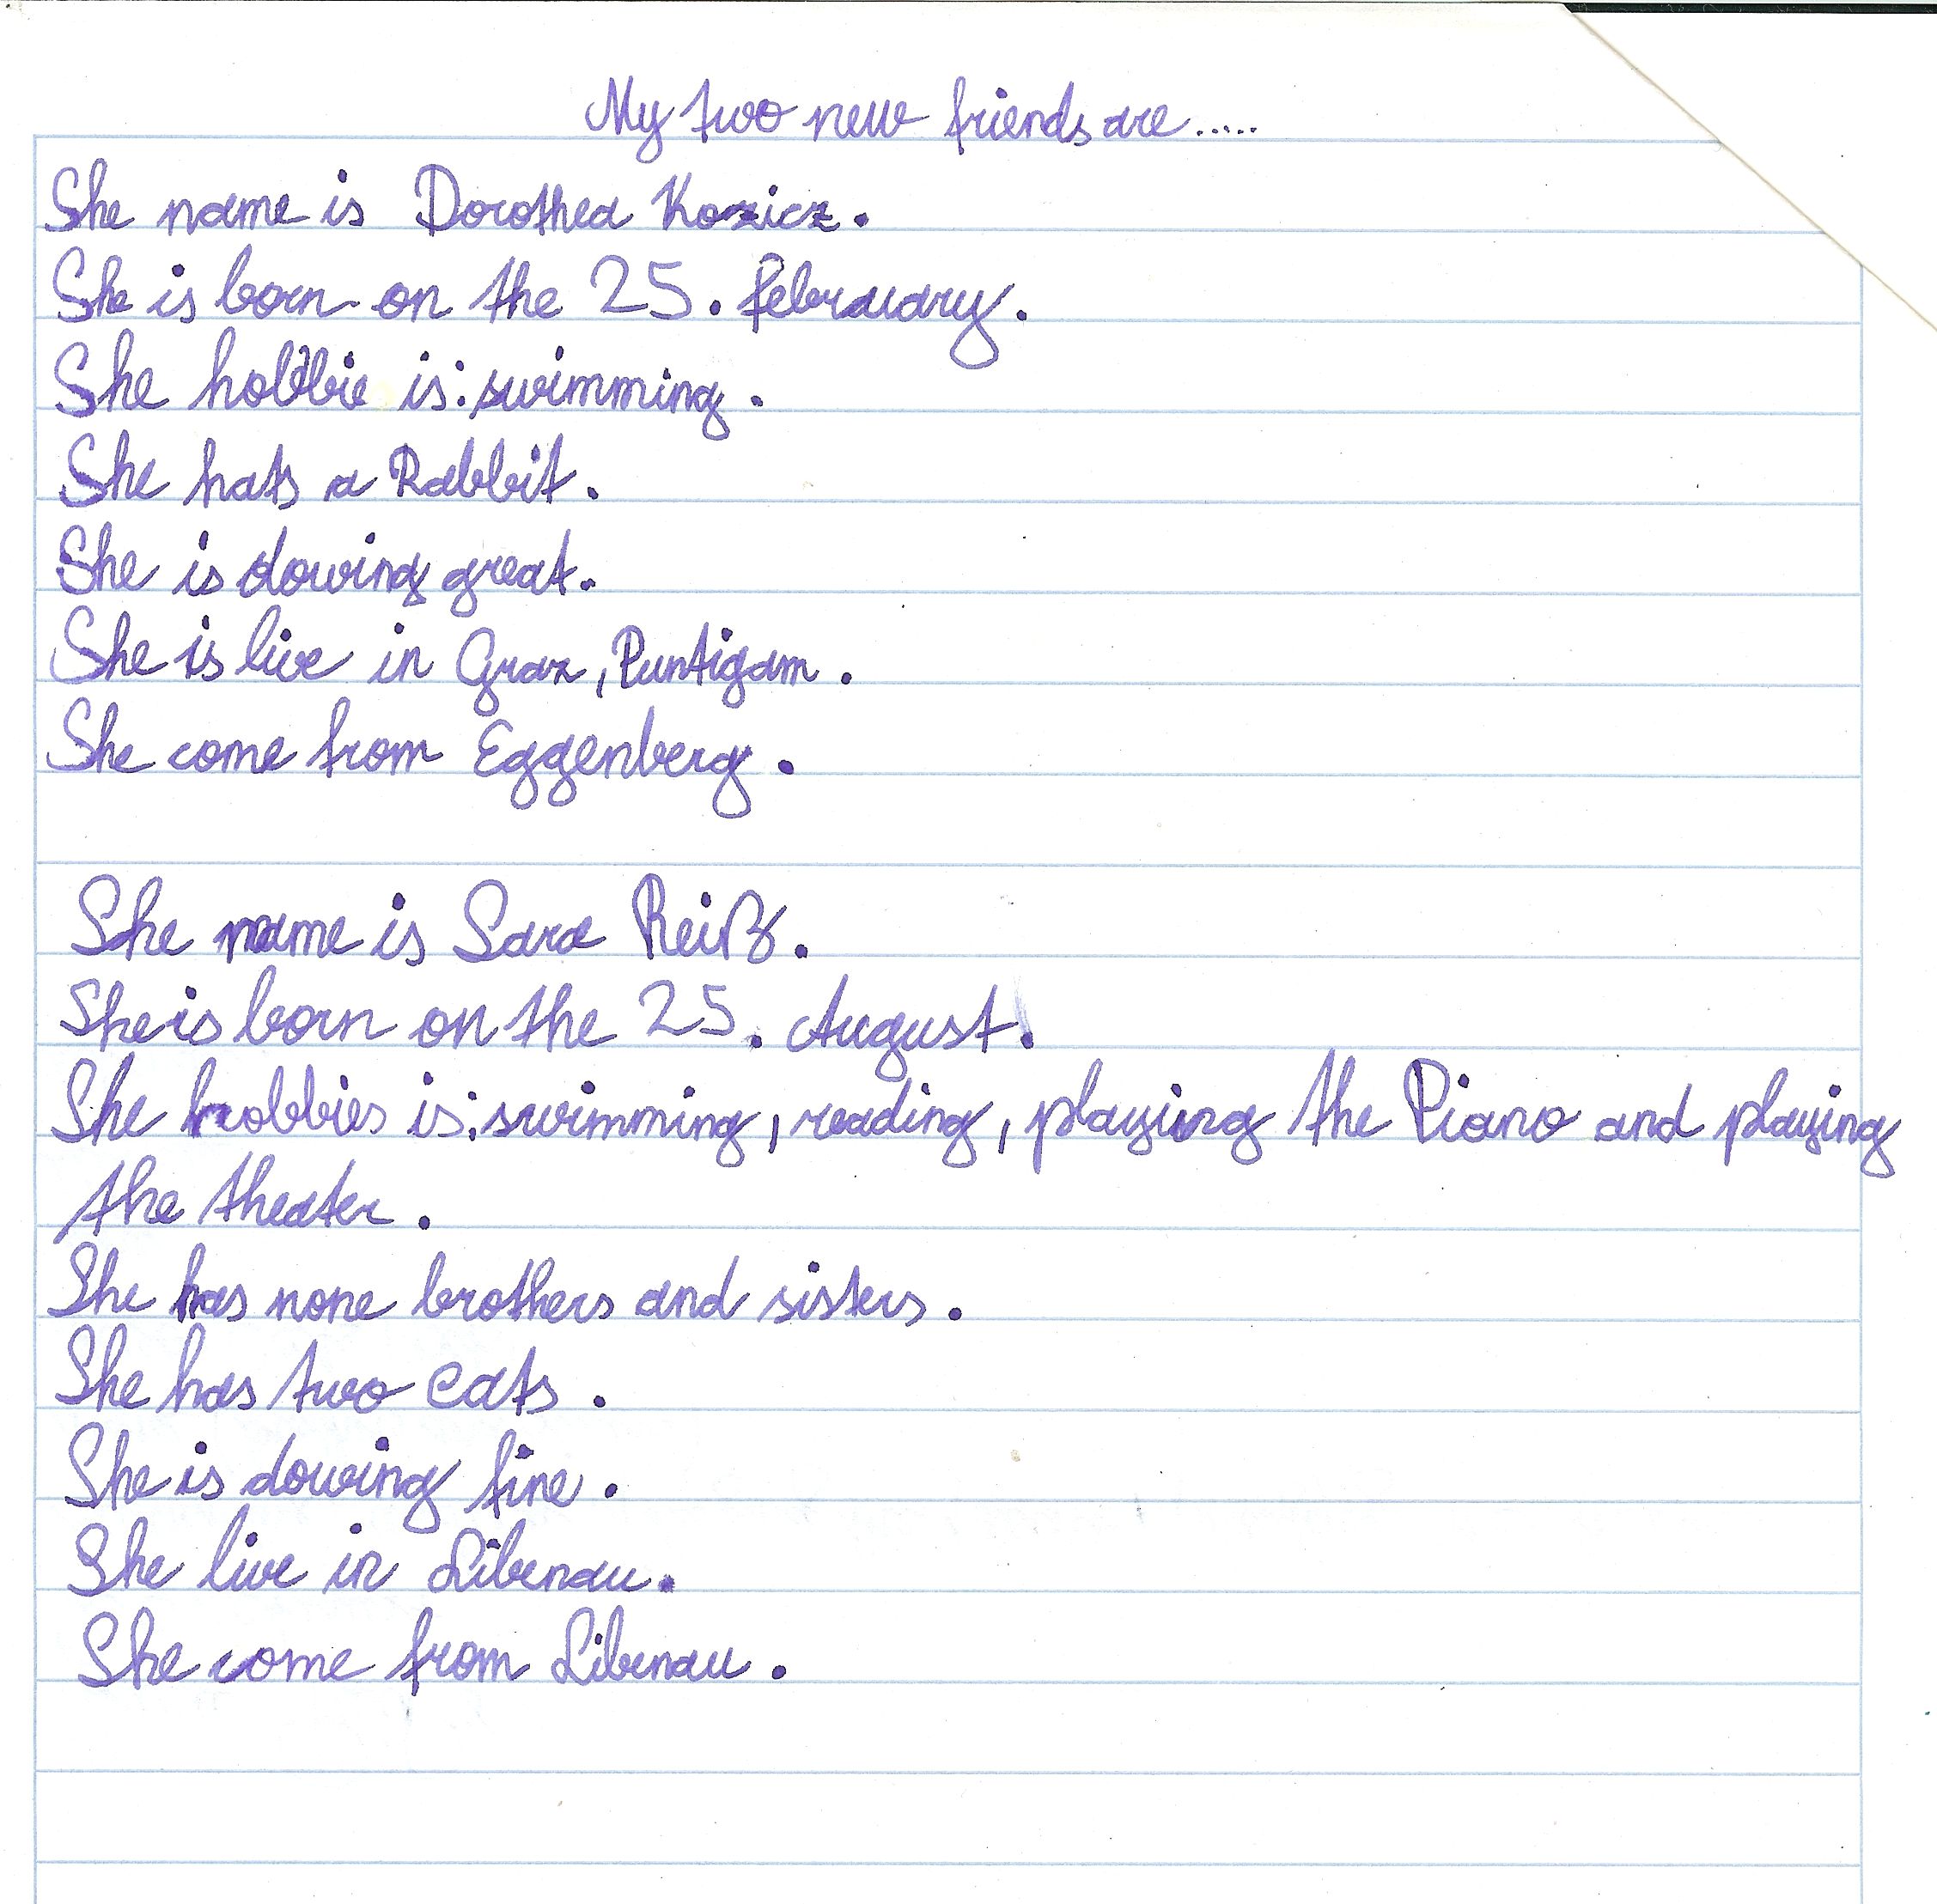 My two new friends are.....
She name is Dorothea Kozicz.
She is born on the 25. februuary.
She hobbie is: swimming.
She hats a Rabbit.
She is dowing great.
She is live in Graz, Puntigam.
She come from Eggenberg.
She name is Sara Reiß.
She is born on the 25. August.
She hobbies is: swimming, reading, playing the Piano and playing
the theater.
She has none brothers and sisters.
She has two cats.
She is dowing fine.
She live in Libenau.
She come from Libenau.